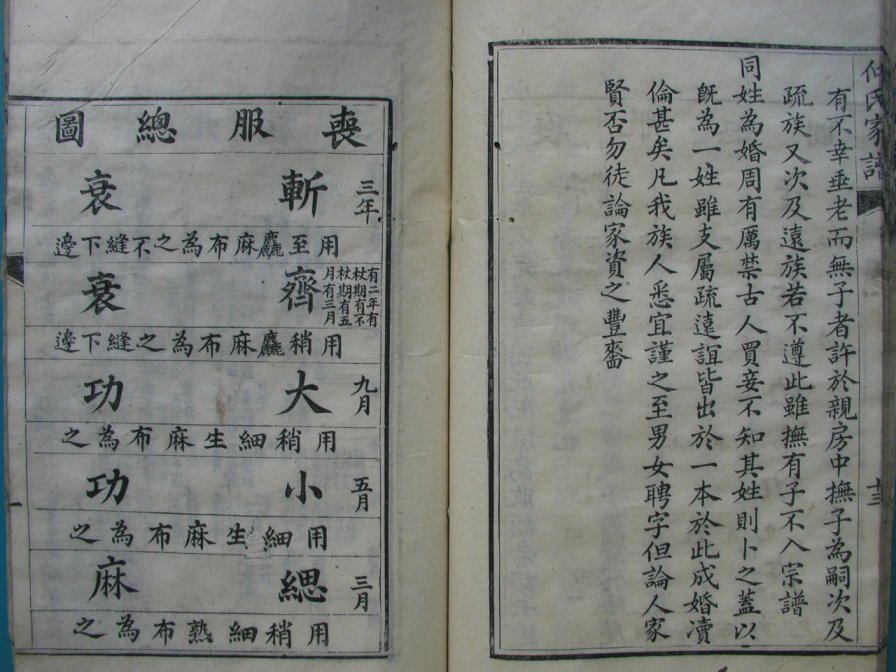 仲氏家譜
十三
有不幸垂老而無子者許於親房中撫子為嗣次及
疏族又次及遠族若不遵此雖撫有子不入宗譜
同姓為婚周有厲禁古人買妾不知其姓則卜之蓋以
既為一姓雖支屬疏遠誼皆出於一本於此成婚瀆
倫甚矣凡我族人悉宜謹之至男女聘字但論人家
賢否勿徒論家資之豐嗇
喪服總圖
三年
斬衰
用至麤麻布為之不縫下邊
有二年有
杖期有不
杖期有五
月有三月
齊衰
用稍麤麻布為之縫下邊
九月
大功
用稍細生麻布為之
五月
小功
用細生麻布為之
三月
緦麻
用稍細熟布為之
一